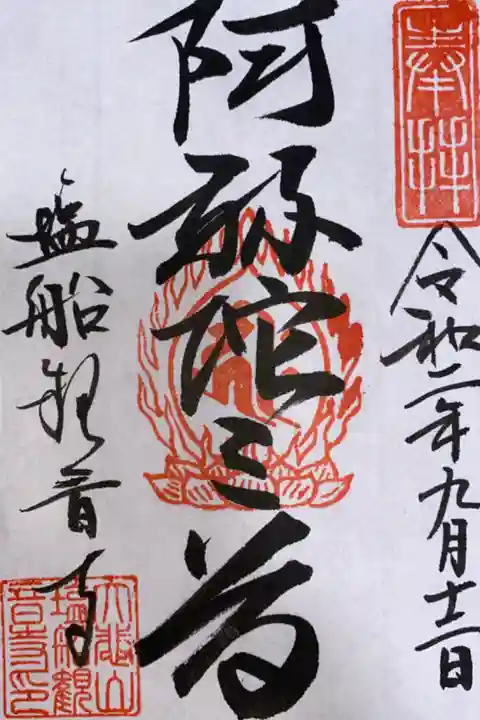 奉拝
令和二年九月十二日
阿弥陀三尊
塩船観音寺
大悲山
塩船観
音寺印